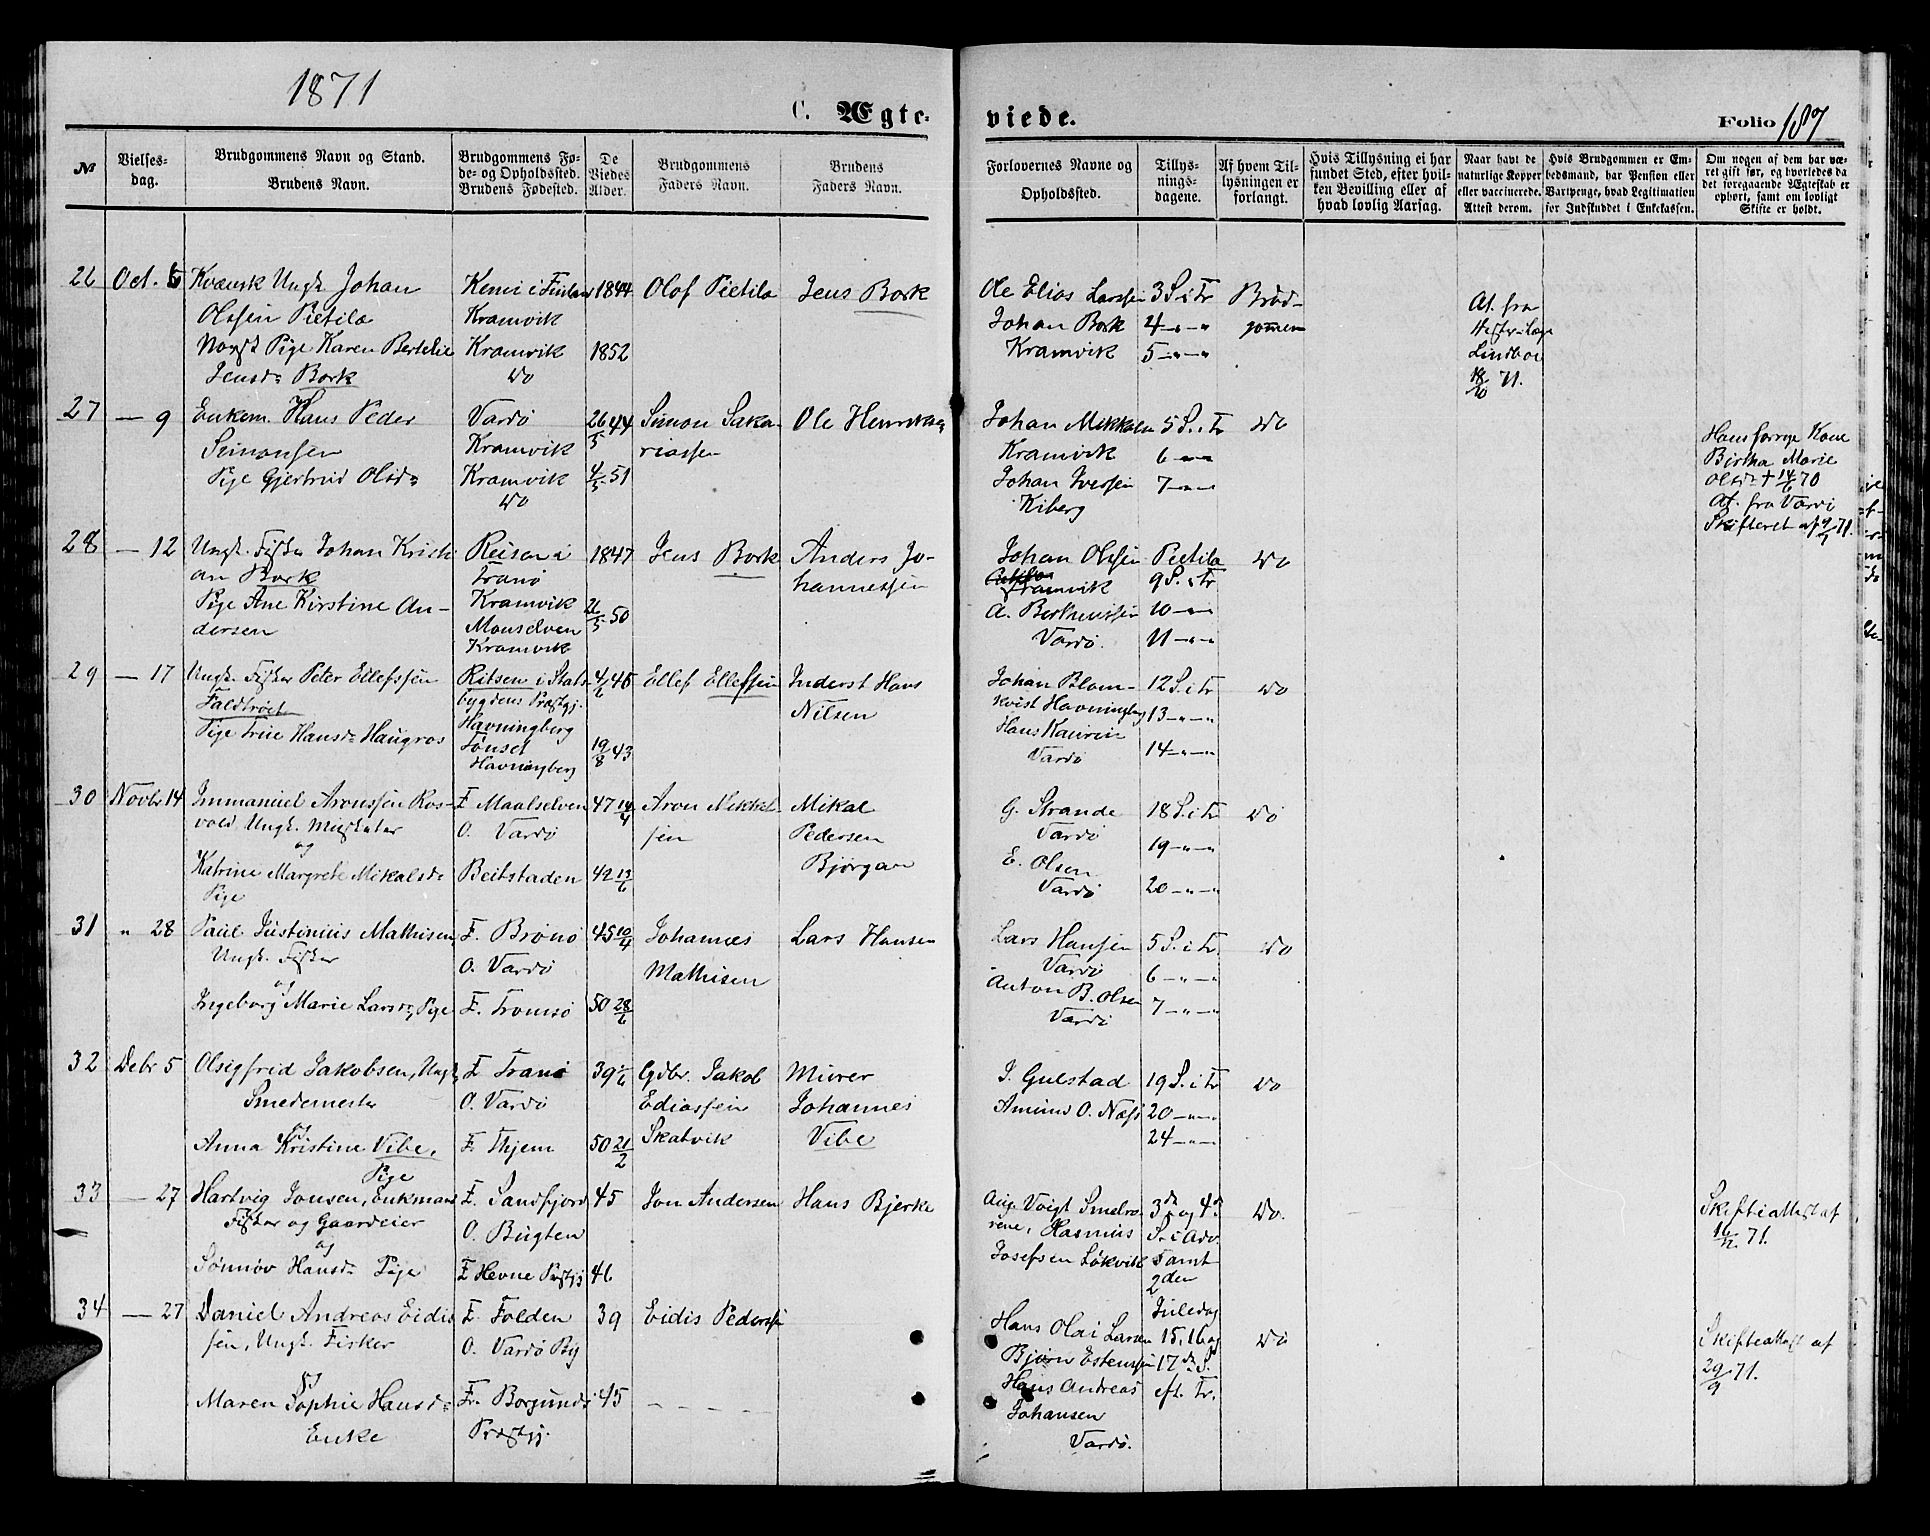 1871
C. Ægte-
viede.
Folio 187
№
Vielses-
dag.
Brudgommens Navn og Stand.
Brudens Navn.
Brudgommens Fø-
de- og Opholdssted.
Brudens Fødested.
De
Viedes
Alder.
Brudgommens
Faders Navn.
Brudens
Faders Navn.
Forlovernes Navne og
Opholdssted.
Tillys-
nings-
dagene.
Af hvem Til-
lysningen er
forlangt.
Hvis Tillysning ei har
fundet Sted, efter hvil-
ken Bevilling eller af
hvad lovlig Aarsag.
Naar havt de
naturlige Kopper
eller vaccinerede.
Attest derom.
Hvis Brudgommen er Em-
bedsmand, har Pension eller
Vartpenge, hvad Legitimation
for Indskuddet i Enkekassen.
Om nogen af dem har væ-
ret gift før, og hvorledes da
det foregaaende Ægteskab er
ophørt, samt om lovligt
Skifte er holdt.
26 Oct. 6 Kvænsk Ungk. Johan Kemi i Finland 1844 Olof Pietila Jens Bork Ole Elias Larssen 3 S. i Tr Brud-
Olssen Pietila Kramvik Johan Bork 4 -"-" gommen At. fra
Norsk Pige Karen Bertelie Kramvik 1852 Kramvik 5 -"-"
Jensd. Bork Do 18/10 71.
27 — 9 Enkem. Hans Peder Vardö 26/5 44 Simon Saka- Ole Henriksen Johan Mikkelsen 5 S. i Tr Do
Simonsen Kramvik riassen Kramvik 6 -"- Hans forrige Kone
Pige Gjertrud Olsd. Kramvik 4/5 51 Johan Iversen 7 -"- Birtha Marie
Do Kiberg Olsd. † 14/6 70
At. fra Vardö
Skifteret af 9/9 71.
28 — 12 Ungk. Fisker Johan Kristi- Reisen i 1847 Jens Bork Anders Jo- Johan Olssen Pietila Do
an Bork Tranö hannessen Kramvik 9 S. i Tr
Pige Ane Kirstine An- Kramvik 26/5 50 A. Berthenssen 10 -"-
dersen Maaselven Vardö. 11 -"-"
Kramvik
29 — 17 Ungk. Fisker Peter Ellefssen Ritsen i Stads- 4/6 46 Ellef Ellefsen Inderst Hans Johan Blom- 12 S. i Tr Do
Faldtröet bygdens Præstgj. Nilsen kvist Havningberg 13 -"-"
Pige Trine Hansd. Haugros Havningberg Hans Kaurin
Tönset 19/8 43 Vardö 14 -"-"
Havningberg
30 Novbr 14 Immanuel Aronssen Ros- F. Maalselven 47 14/4 Aron Mikkel- Mikal G. Strande 18 S. i Tr Do
vold Ungk. O. Vardö sen Pedersen Vardö 19 -"-"
og Bjørgan E. Olsen
Katrine Margrete Mikalsd. Beitstaden 42 13/6 Vardö 20 -"-"
Pige
31 " 28 Paul Justinius Mathisen, F. Brönö 45 10/4 Johannes Lars Hansen Lars Hansen 5 S. i Tr. Do
Ungk. Fisker O. Vardö Mathisen Vardö 6 -"-"
og Anton B. Olsen
Ingeborg Marie Larsd. Pige F. Tromsö 50 28/6 Vardö 7 -"-"
32 Debr 5 Olsigfrid Jakobsen, Ungk. F. Tranö 39 1/6 Gdbr. Jakob Murer J. Gulstad 19 S. i Tr Do
Smedemester O. Vardö Ediassen Johannes Amund O. Næss 20 -"-
og Skatvik Vibe 24 -"-
Anna Kristine Vibe, F. Thjem 50 21/2
Pige
33 — 27 Hartvig Jonsen, Enkmand F. Sandfjord 45 Jon Andersen Hans Bjerke Aug. Voigt Smelro- 3de og 4de Do. Skifteattest af
Fisker og Gaardeier O. Bugten rene, Rasmus S. i Adv. 16/12 71.
og Josefsen Lökvik Samt
Sönnöv Hansd. Pige F. Hevne Præstgj 46 2den
Juledag
34 — 27 Daniel Andreas Eidis- F. Folden 39 Eidis Pederssen Hans Olai Larsen 15, 16 og Do Skifteattest af
sen, Ungk. Fisker O. Vardö By Bjørn Estenssen 17de S. 29/9 71.
og Hans Andreas eft. Tr.
Maren Sophie Hansd. F. Borgunds 45 Johansen
Enke Præstgj. Vardö.